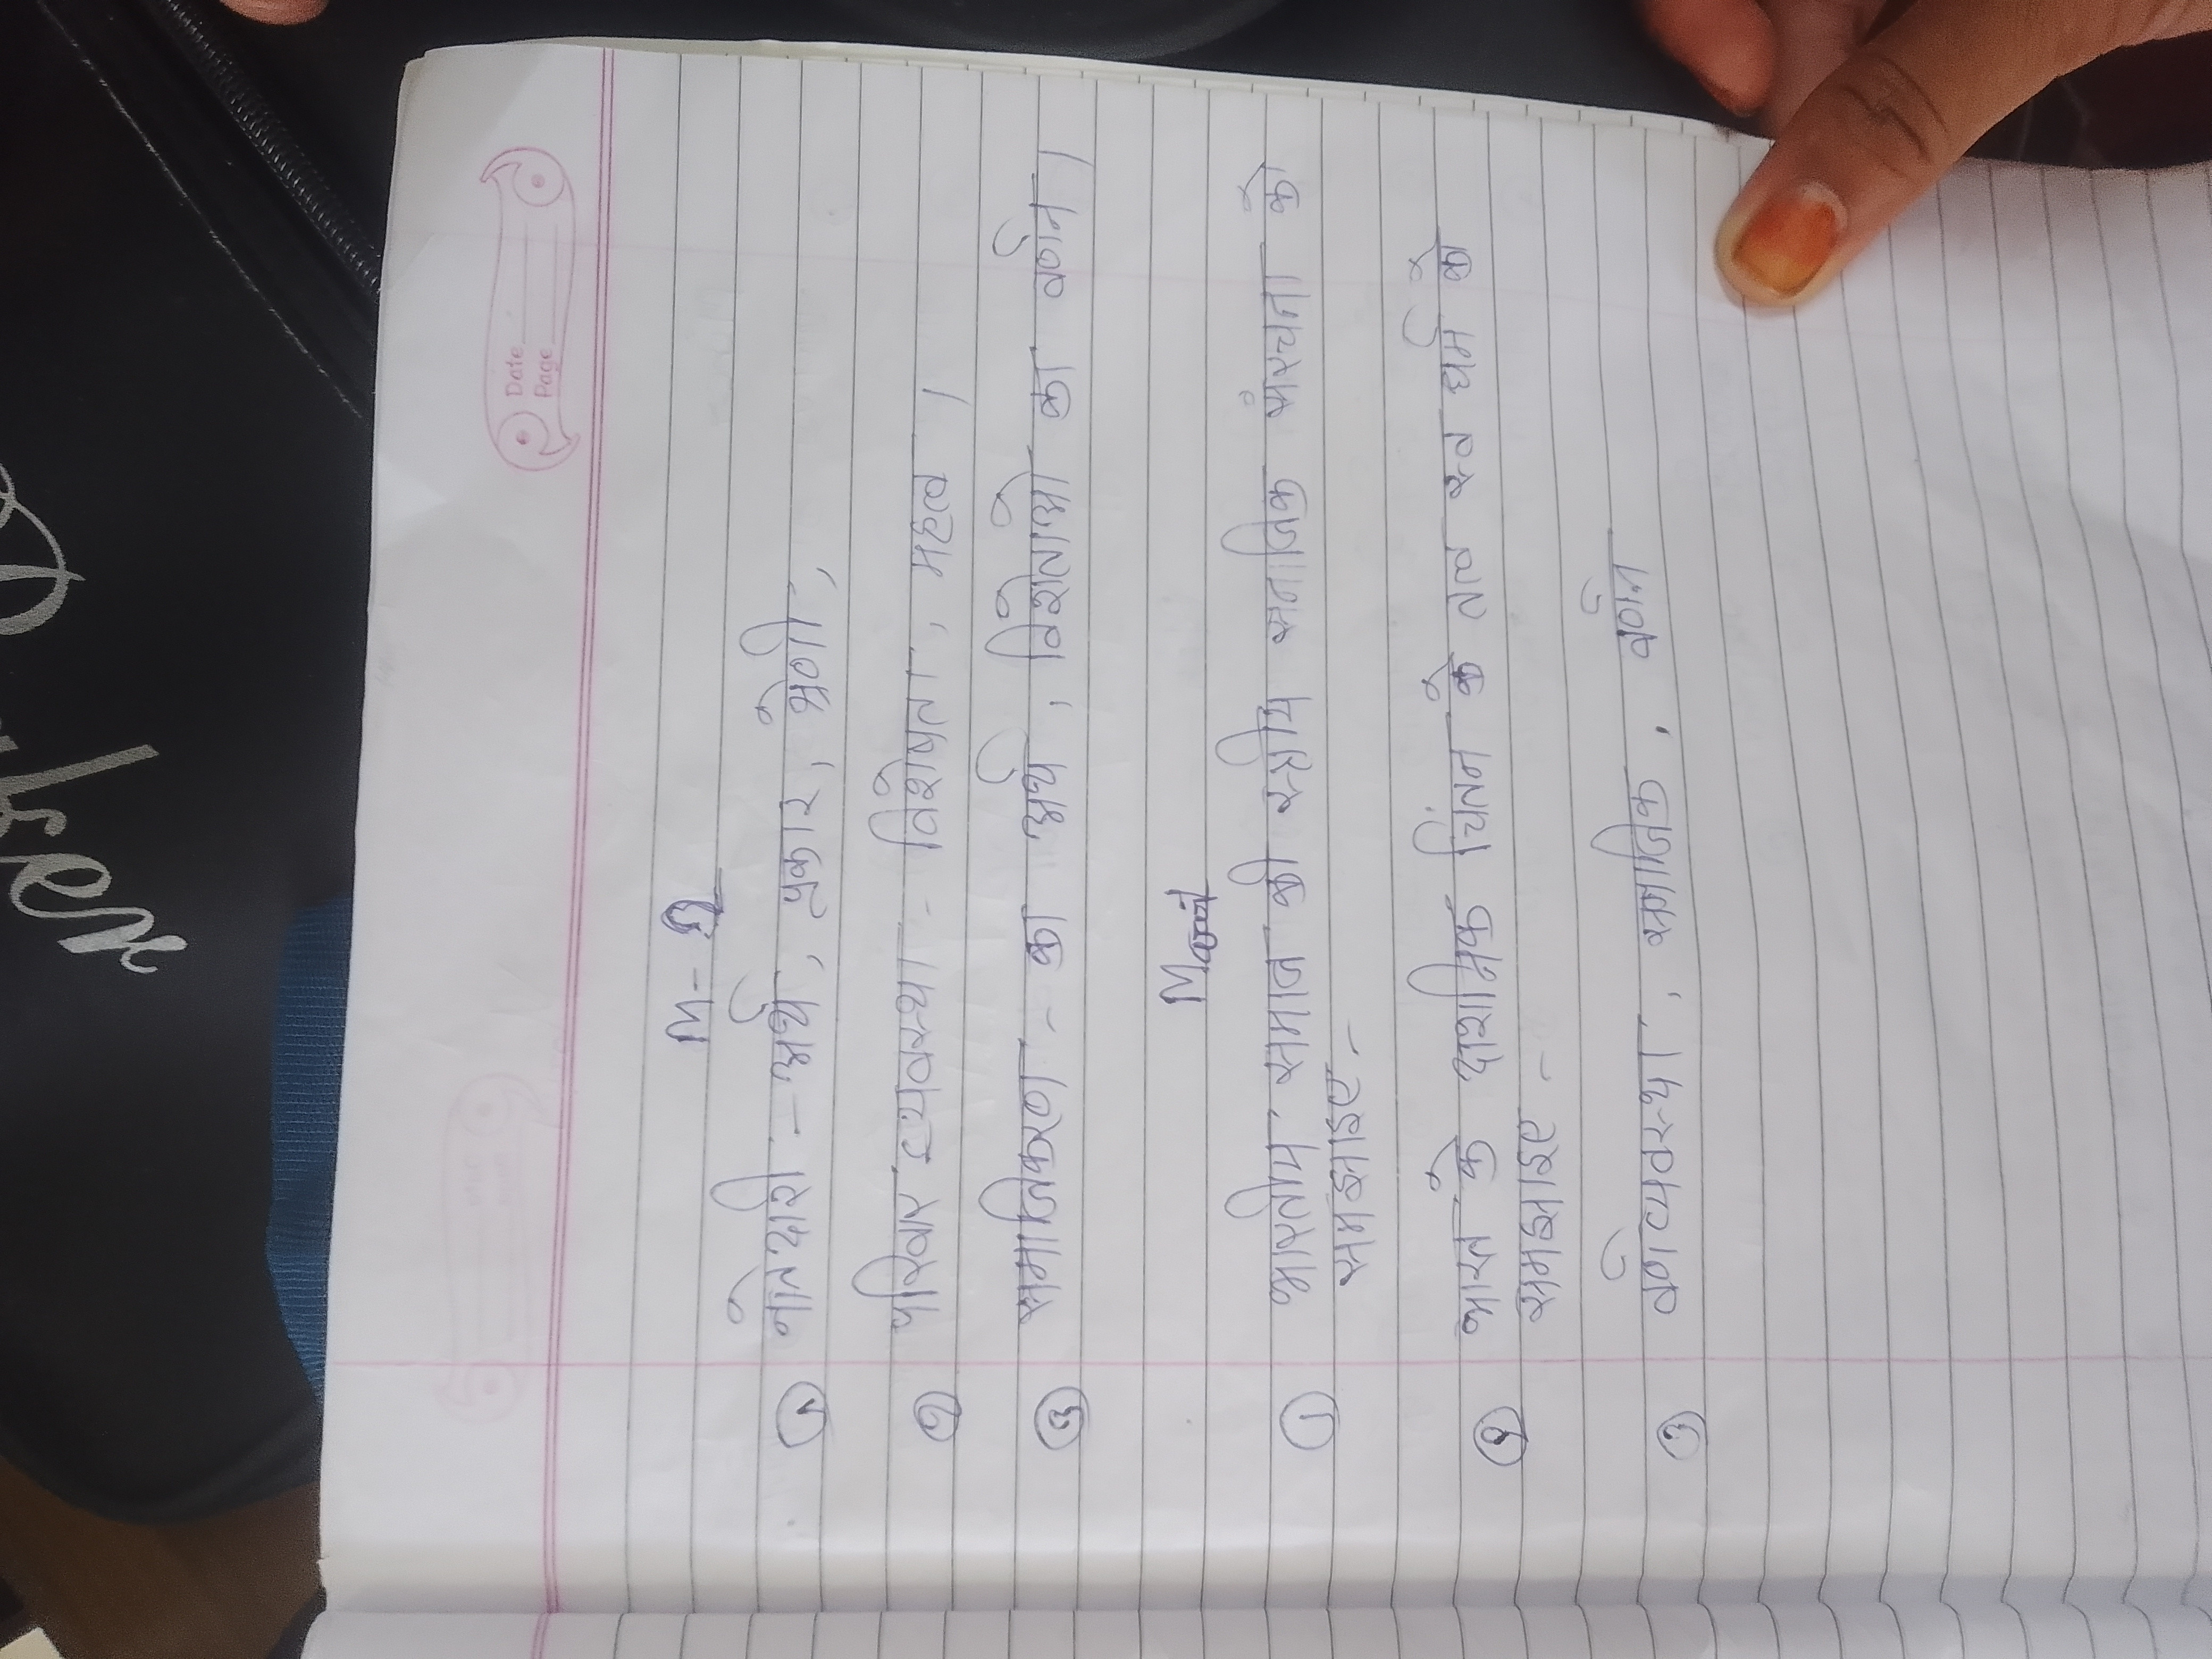 Date
Page
M-2
नातेदारी - अर्थ, प्रकार, श्रेणी,
परिवार व्यवस्था - विशेषता, महत्व ।
समाजिकरण - का अर्थ, विशेताओ का वर्णन।
भारतीय समाज की स्त्रीय समाजिक संरचना को
समझाइए -
भारत के दार्शनिक चिंतन के तत्व एवं धर्म के
समझाइए -
वर्ण व्यवस्था, समाजिक, वर्णन
① 
②
③
①
②
③